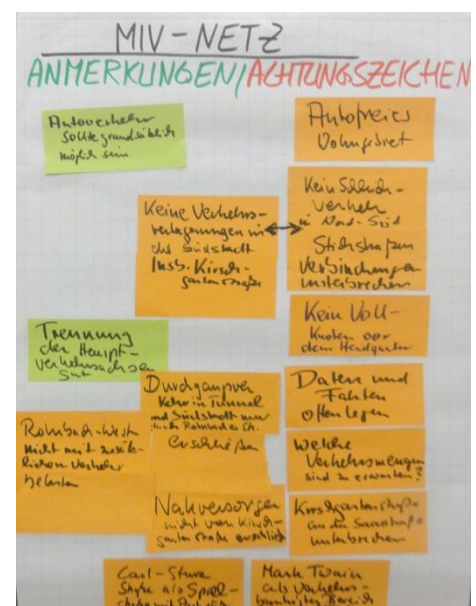 MIV-NETZ
ANMERKUNGEN/ACHTUNGSZEICHEN
Autoverkehr
sollte grundsätzlich
möglich sein
Autofreies
Wohngebiet
Keine Verkehrs-
verlagerungen in
die Südstadt
Insb. Kirsch-
gartenstraße
Kein Schleich-
verkehr
in Nord-Süd
Stichstraßen
Verbindungen
unterbrechen
Kein Voll-
knoten vor
dem Headquarter
Trennung
der Haupt-
verkehrsachsen
gut
Durchgangsver-
kehr in Tunnel
und Südstadt nur
Rohrbacher Str.
erschließen
Daten und
Fakten
offenlegen
Rohrbach-West
nicht mit zusätz-
lichen Verkehr
belasten
Welche
Verkehrsmengen
sind zu erwarten?
Nahversorger
nicht von Kirsch-
gartenstraße
Kirschgartenstraße
an der Saarstraße
unterbrechen
Carl-
Straße als Spiel-
Mark Twain
als Verkehrs-
beruhigter Bereich